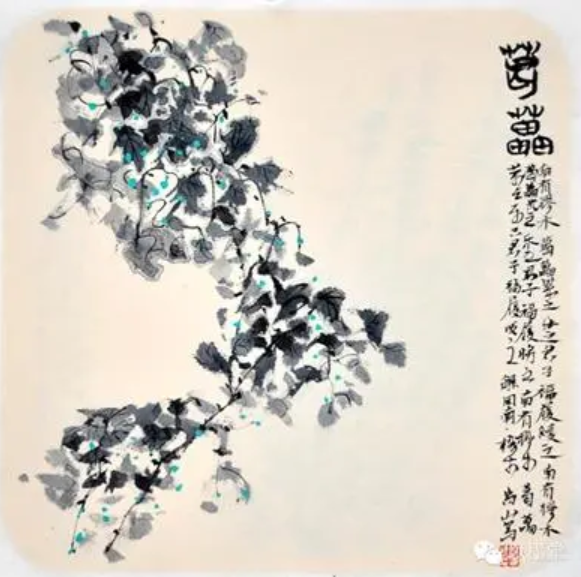 葛藟
南有樛木葛藟纍之乐只君子福履绥之南有樛木
葛藟荒之乐只君子福履将之南有樛木葛藟
萦之乐只君子福履成之 周南·樛木